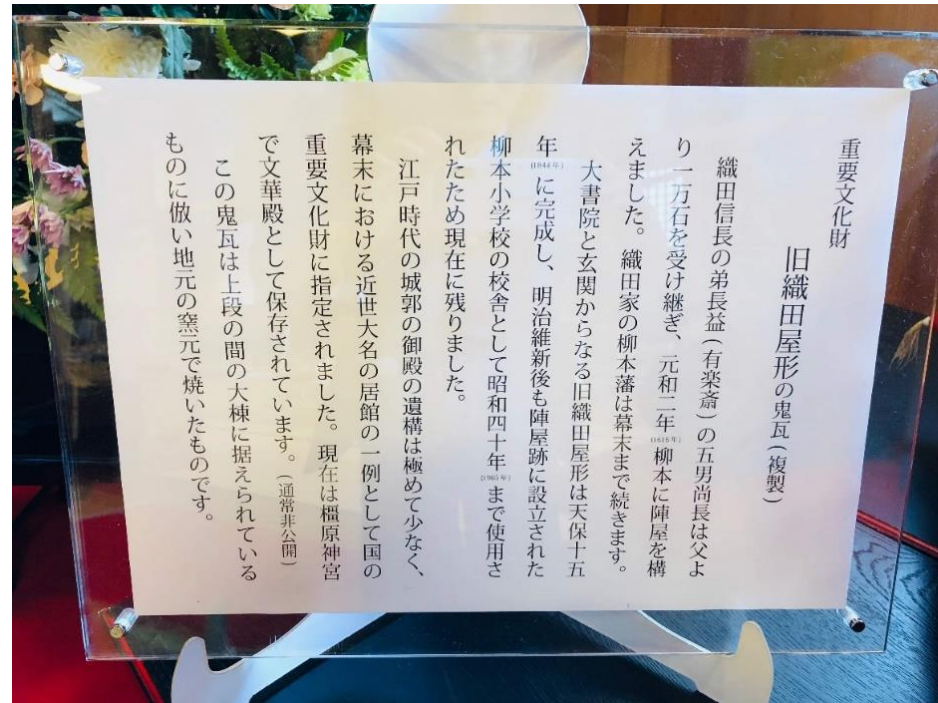 重要文化財
旧織田屋形の鬼瓦(複製)
織田信長の弟長益(有楽斎)の五男尚長は父よ
り一万石を受け継ぎ、元和二年(1616年)柳本に陣屋を構
えました。織田家の柳本藩は幕末まで続きます。
大書院と玄関からなる旧織田屋形は天保十五
年(1844年)に完成し、明治維新後も陣屋跡に設立された
柳本小学校の校舎として昭和四十年(1965年)まで使用さ
れたため現在に残りました。
江戸時代の城郭の御殿の遺構は極めて少なく、
幕末における近世大名の居館の一例として国の
重要文化財に指定されました。現在は橿原神宮
で文華殿として保存されています。(通常非公開)
この鬼瓦は上段の間の大棟に据えられている
ものに倣い地元の窯元で焼いたものです。